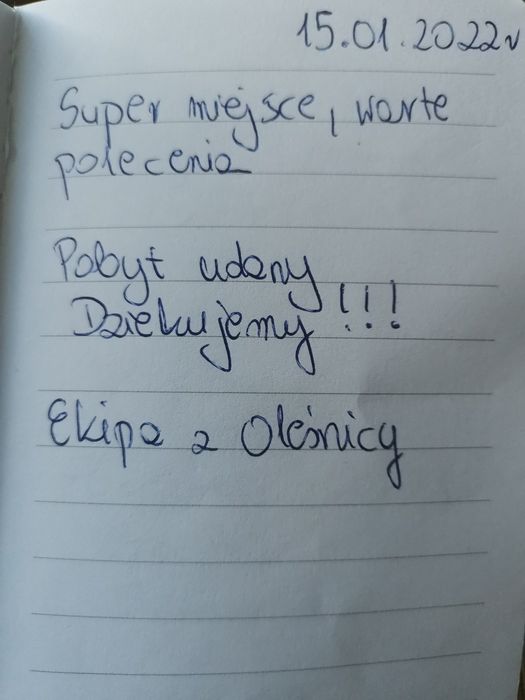 15.01.2022r
Super miejsce, warte
polecenia
Pobyt udany
Dziekujemy!!!
Ekipa z Oleśnicy